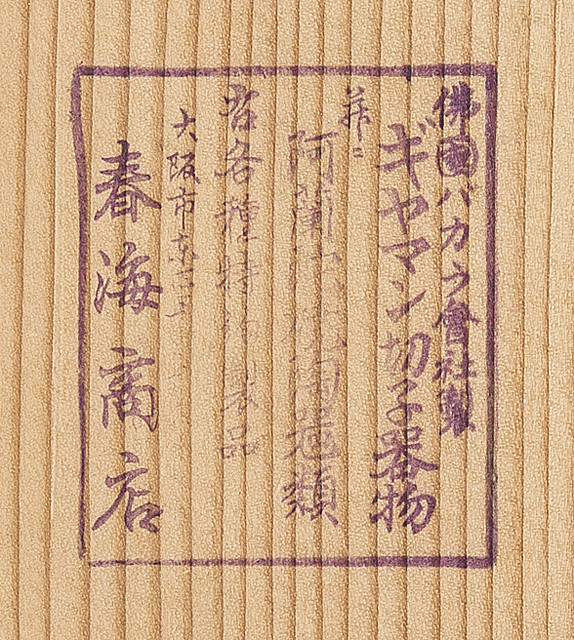 佛國バカラ會社製
ギヤマン切子器物
并ニ
阿蘭陀 陶器類
右各種特約製品
大阪市
春海商店